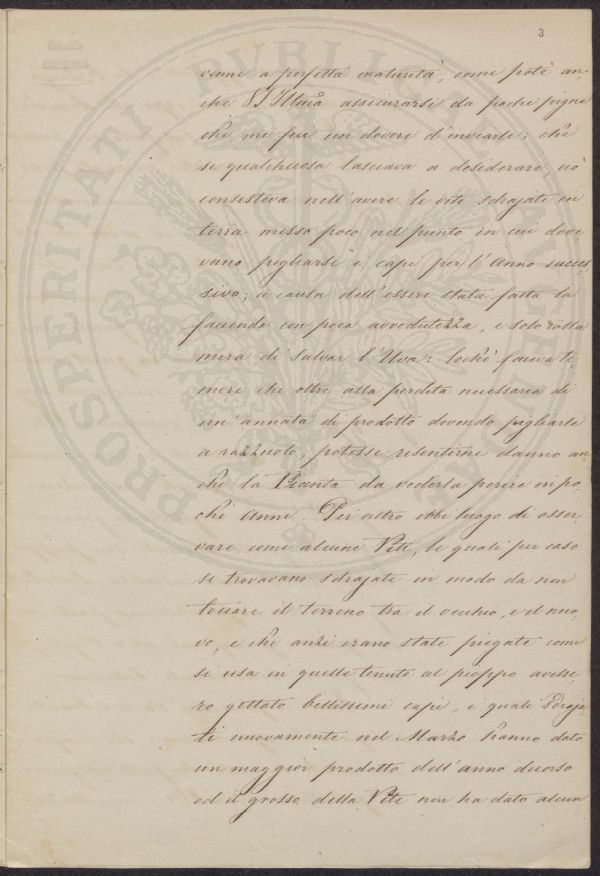 3
venne a perfetta maturità, come potè an-
che VS Illmã assicurarsi da poche pigne
che mi feci un dovere d'inviarle; che
se qualchecosa lasciava a desiderare, ciò
consisteva nell'avere le viti sdrajate in
terra messo poco nel punto in cui dove-
vano pigliarsi i capi per l'Anno succes-
sivo; a causa dell'essere stata fatta la
facenda con poca avvedutezza, e solo
mira di salvar l'Uva: lochè faceva te-
mere che oltre alla perdita necessaria di
un'annata di prodotto dovendo pigliarle
a razzuolo, potesse risentirne danno an-
che la Pianta da vederla perire in po-
chi Anni. Per altro ebbi luogo di osser-
vare come alcune Viti, le quali per caso
si trovavano sdrajate in modo da non
toccare il terreno tra il vecchio, e il nuo-
vo, e che anzi erano state piegate come
si usa in quelle tenute al pioppo avesse-
ro gettato bellissimi capi, i quali sdraja-
ti nuovamente nel Marzo hanno dato
un maggior prodotto dell'anno decorso
ed il grosso della Vite non ha dato alcun
PROSPERITATI PVBLICAE